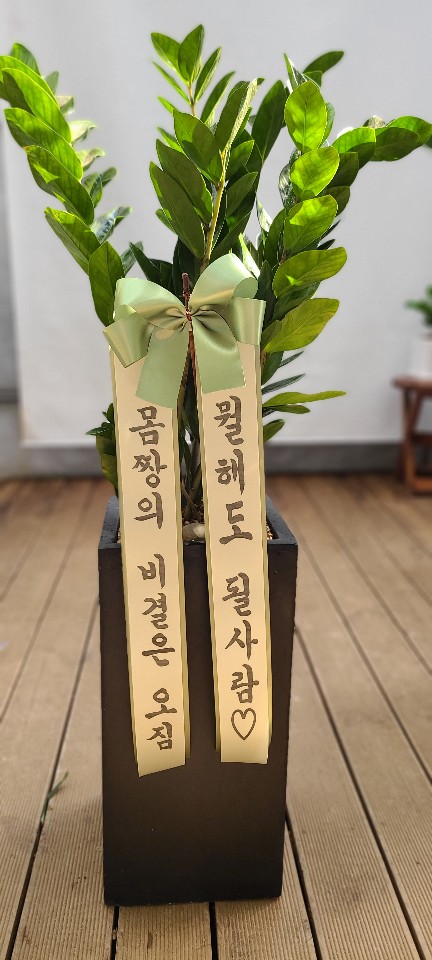 몸짱의 비결은 오짐
뭘해도 될사람♡